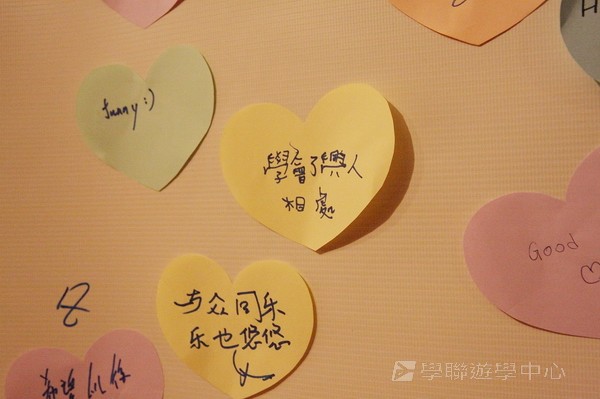 funny:)
學會了與人
相處
Good
与众同乐
乐也悠悠
學聯遊學中心